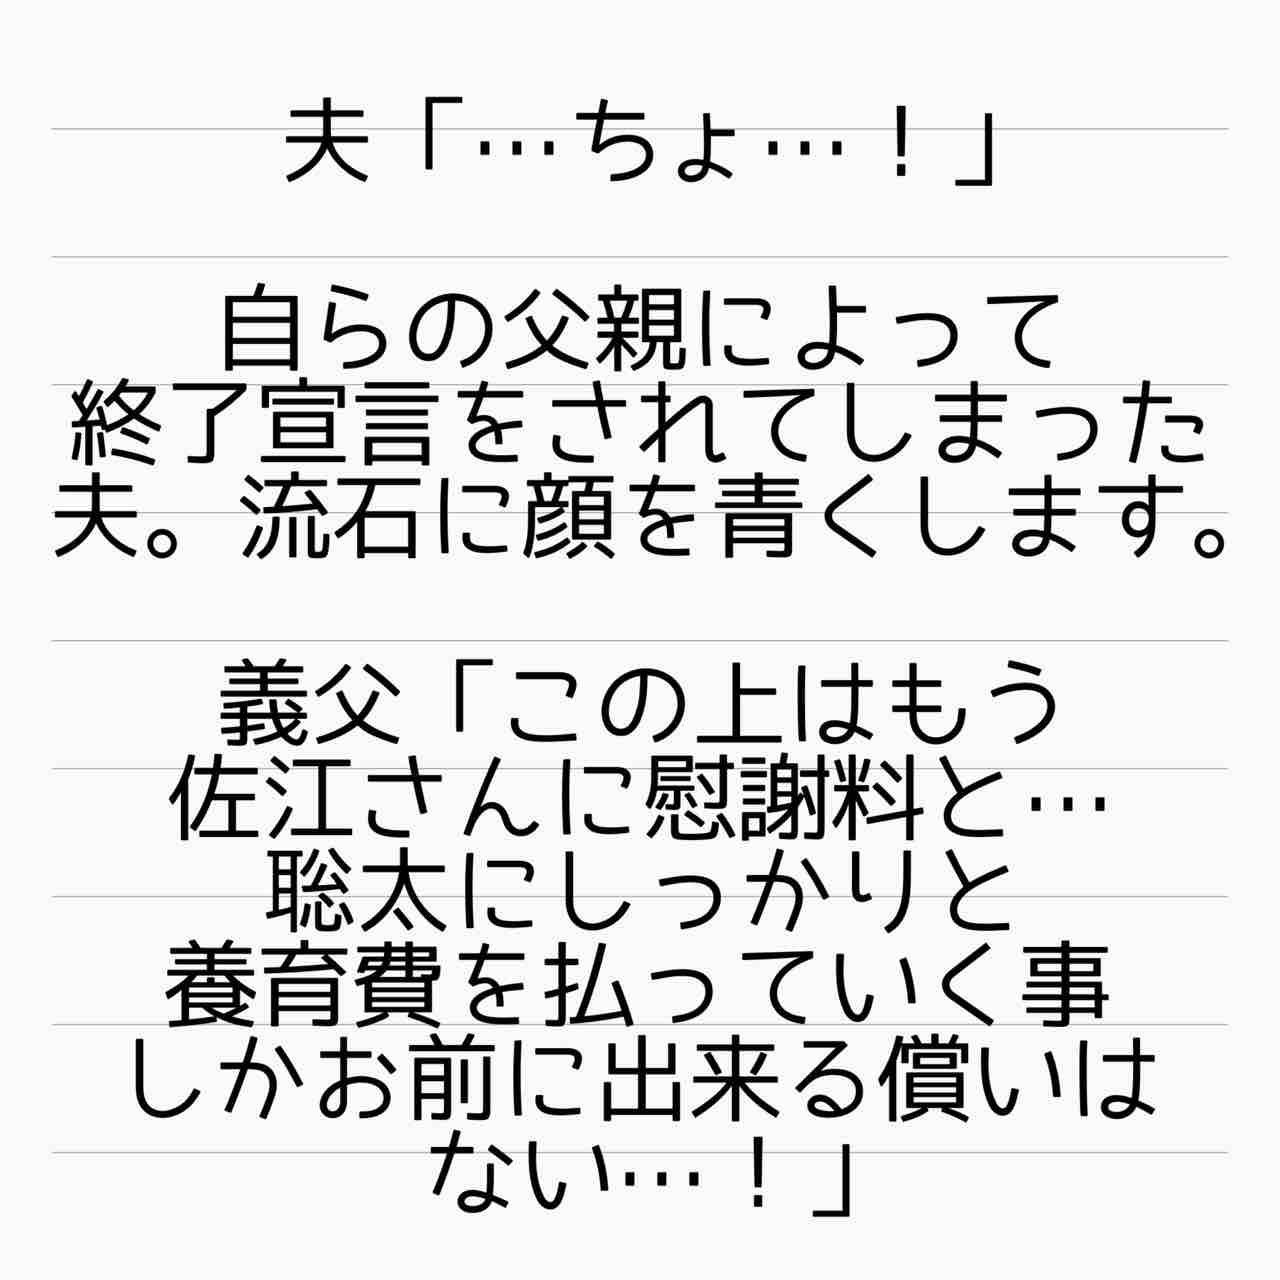 夫「…ちょ…！」
自らの父親によって
終了宣言をされてしまった
夫。流石に顔を青くします。
義父「この上はもう
佐江さんに慰謝料と…
聡太にしっかりと
養育費を払っていく事
しかお前に出来る償いは
ない…！」